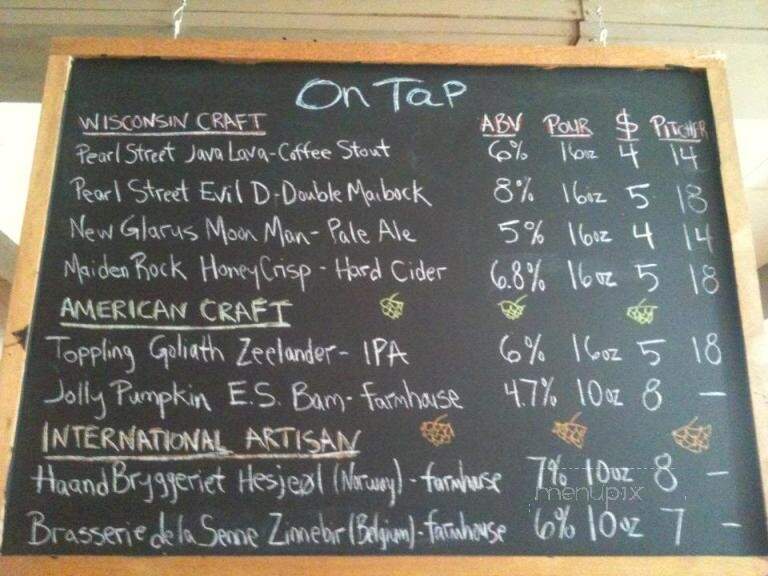 On Tap
WISCONSIN CRAFT ABV POUR $ PITCHER
Pearl Street Java Lava-Coffee Stout 6% 16oz 4 14
Pearl Street Evil D-Double Maibock 8% 16oz 5 18
New Glarus Moon Man- Pale Ale 5% 16oz 4 14
Maiden Rock HoneyCrisp - Hard Cider 6.8% 16oz 5 18
AMERICAN CRAFT
Toppling Goliath Zeelander- IPA 6% 16oz 5 18
Jolly Pumpkin E.S. Bam- farmhouse 4.7% 10oz 8 -
INTERNATIONAL ARTISAN
HaandBryggeriet Hesjeøl (Norway) - farmhouse 7% 10oz 8 -
menupix
Brasserie de la Senne Zinnebir (Belgium)- farmhouse 6% 10oz 7 -